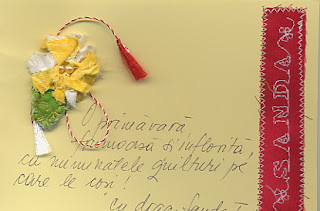 O primăvară
frumoasă și înflorită,
cu minunatele quilturi pe
care le coși!
Cu drag, Sanda T
SANDA